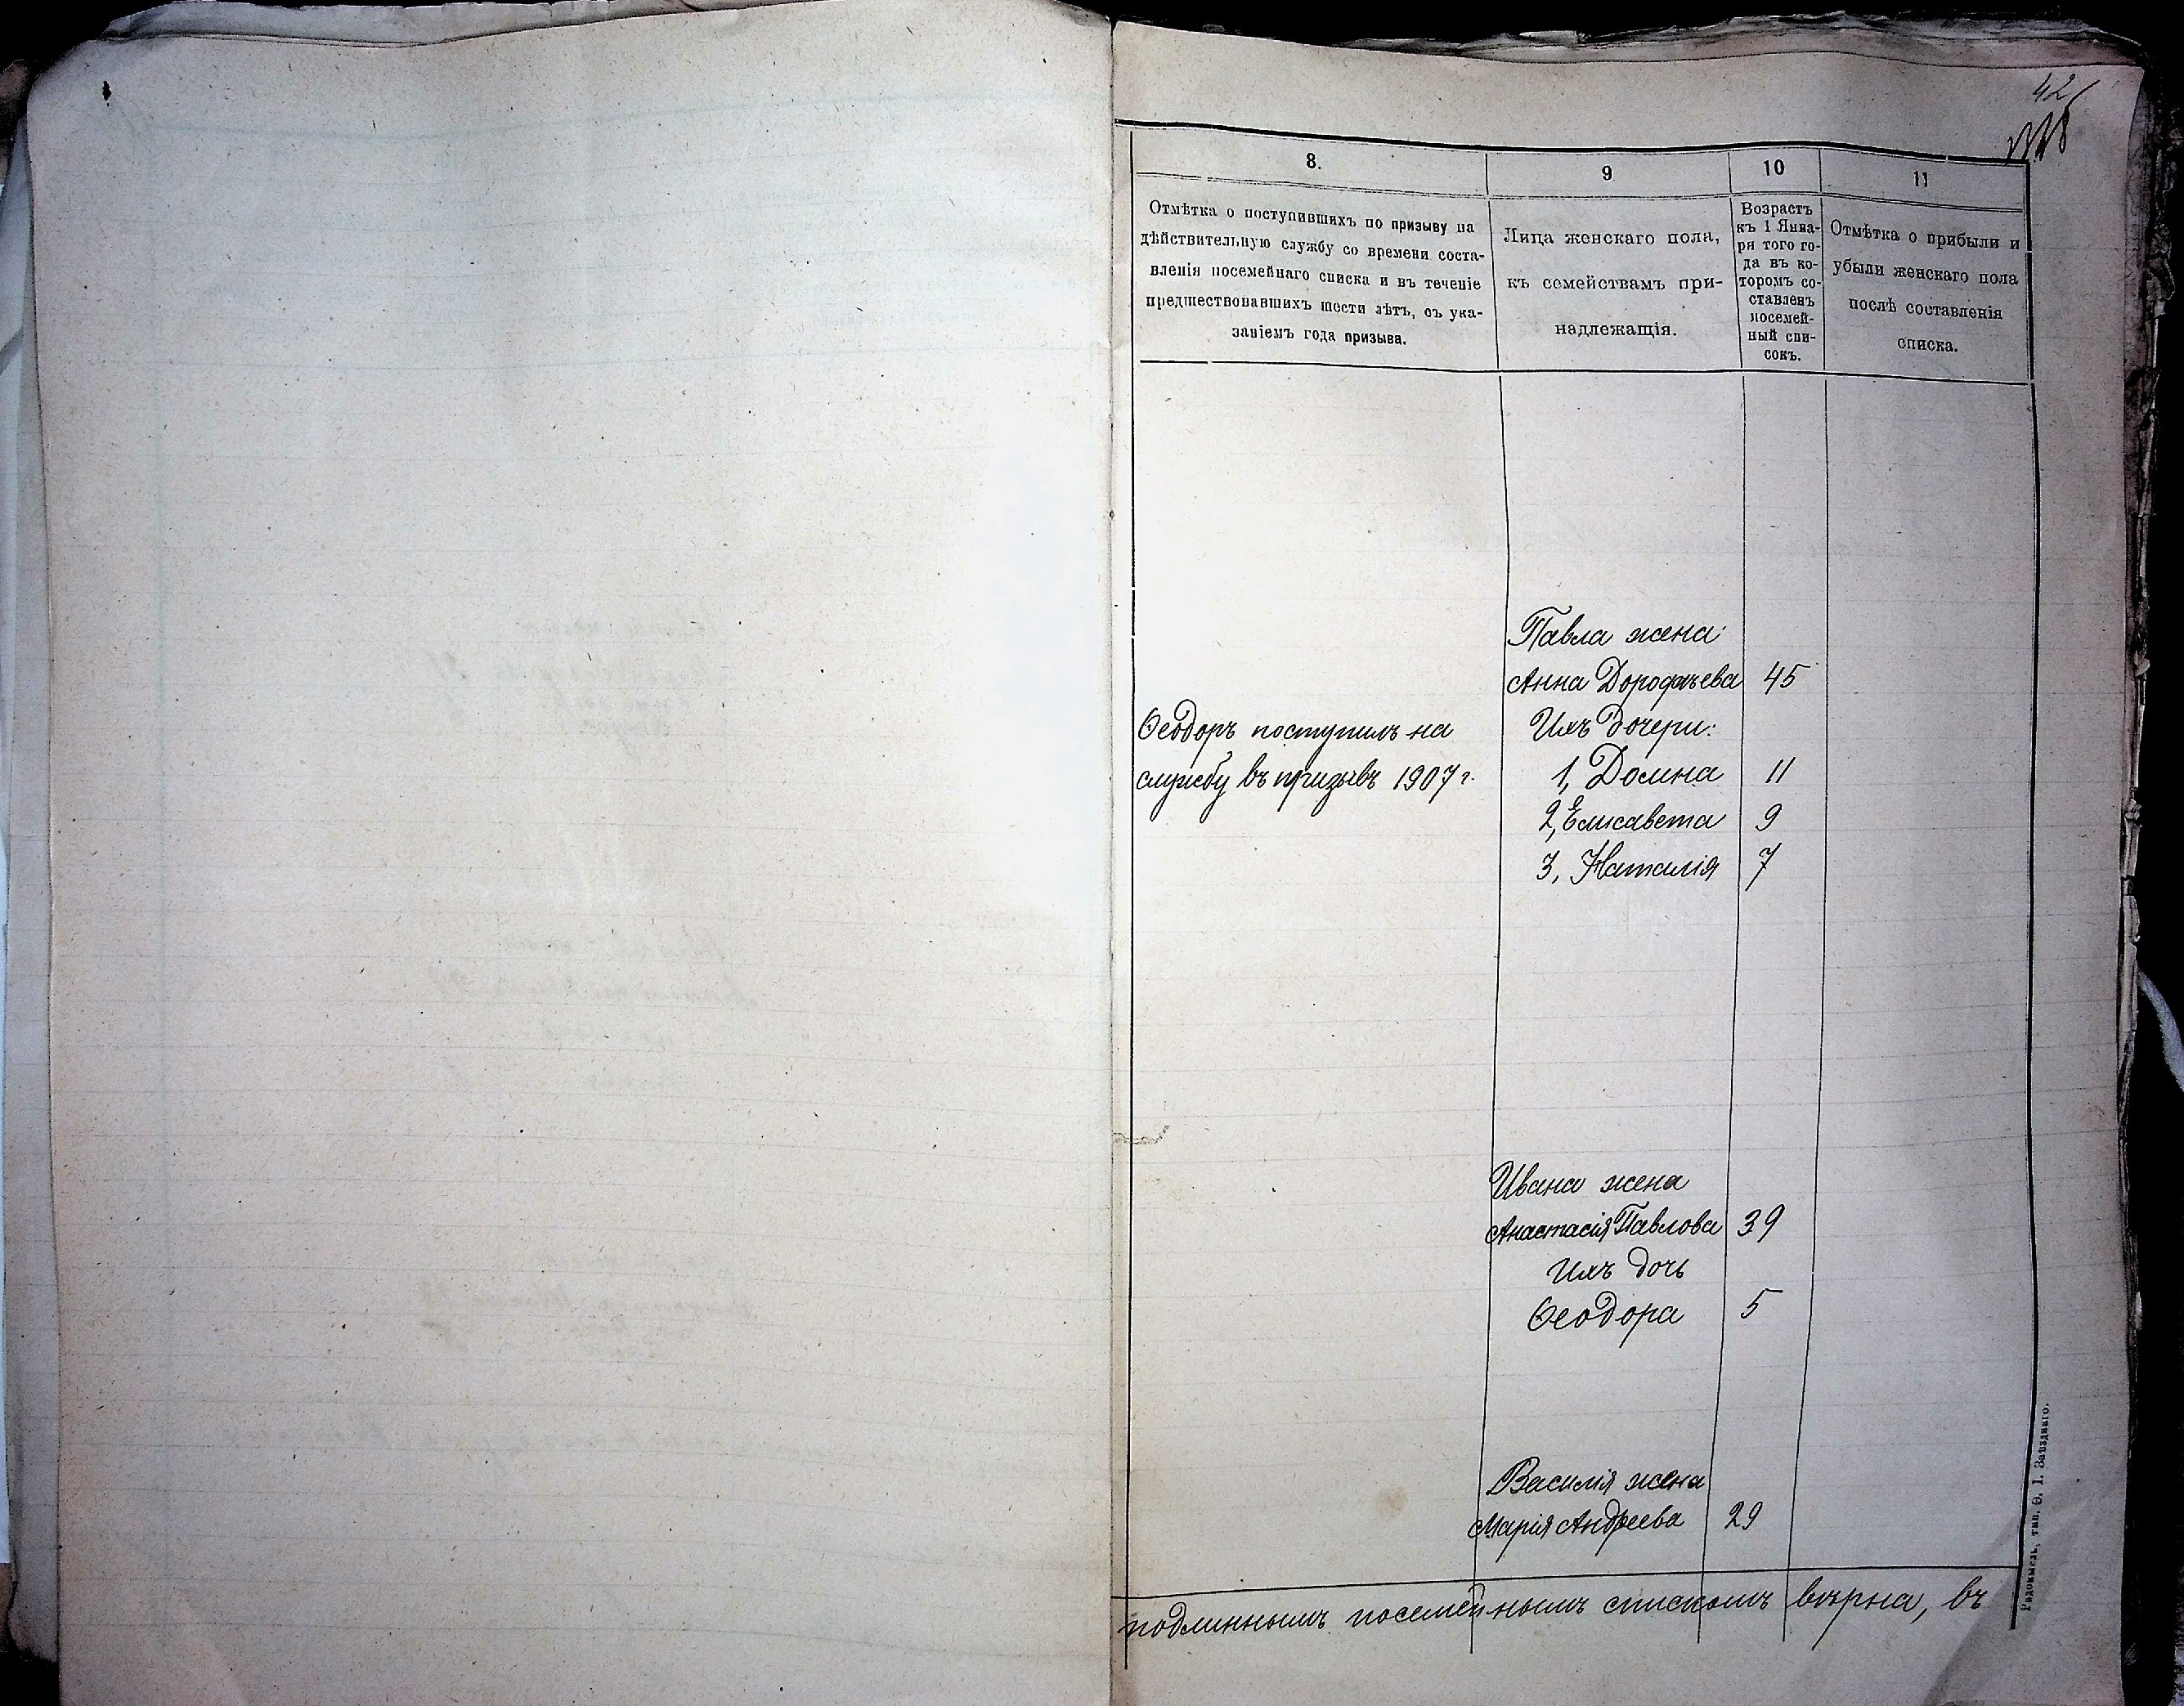 42
8.
Отмѣтка о поступившихъ по призыву на
дѣйствительную службу со времени соста-
вленія посемейнаго списка и въ теченіе
предшествовавшихъ шести лѣтъ, съ ука-
заніемъ года призыва.
9
Лица женскаго пола,
къ семействамъ при-
надлежащія.
10
Возрастъ
къ 1 Янва-
ря того го-
да въ ко-
торомъ со-
ставленъ
посемей-
ный спи-
сокъ.
11
Отмѣтка о прибыли и
убыли женскаго пола
послѣ составленія
списка.
Павла жена:
Анна Дорофѣева 45
Ѳеодоръ поступилъ на
службу въ призывъ 1907 г.
Ихъ дочери:
1, Домна 11
2, Елисавета 9
3, Наталія 7
Ивана жена
Анастасія Павлова 39
Ихъ дочь
Ѳеодора 5
Василія жена
Марія Андреева 29
подлиннымъ посемейнымъ спискомъ вѣрна, въ
Радомысль, тип. Ѳ. І.